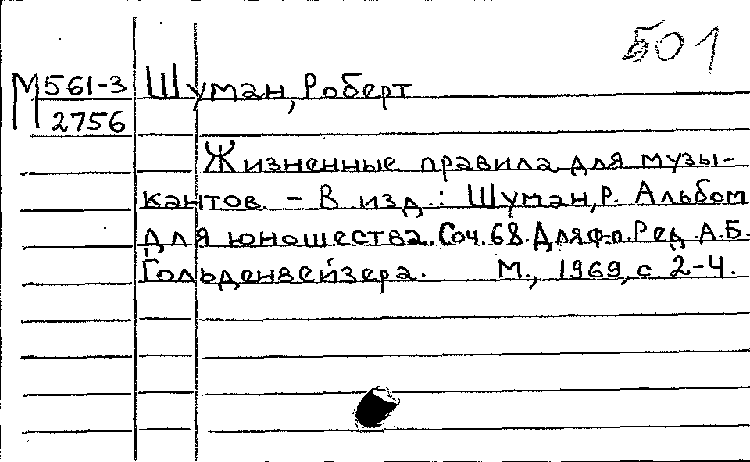 501
М 561-3 Шуман, Роберт
2756
Жизненные правила для музы-
кантов. – В изд.: Шуман, Р. Альбом
для юношества. Соч. 68. Для ф-п. Ред. А.Б.
Гольденвейзера. М., 1969, с 2-4.